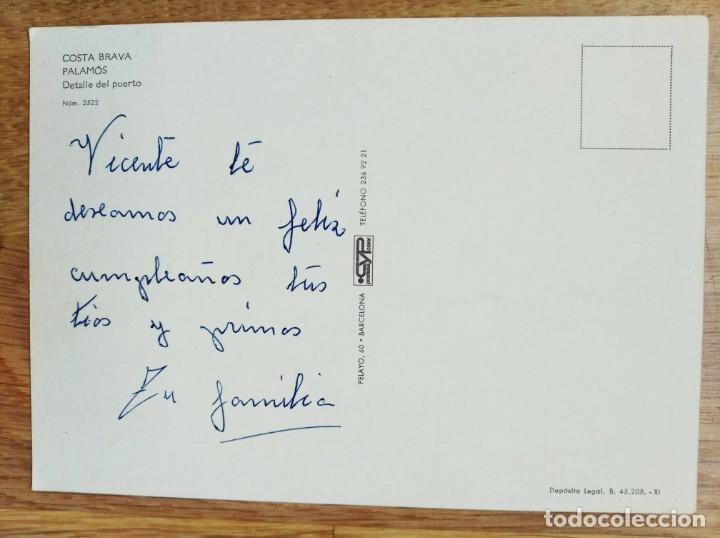 COSTA BRAVA
PALAMÓS
Detalle del puerto
Núm. 2522
Vicente té
deseamos un feliz
cumpleaños tus
tios y primos
Tu familia
PELAYO, 60 • BARCELONA
CYP
TELÉFONO 236 92 21
Depósito Legal, B. 45.208. - XI
todocoleccion